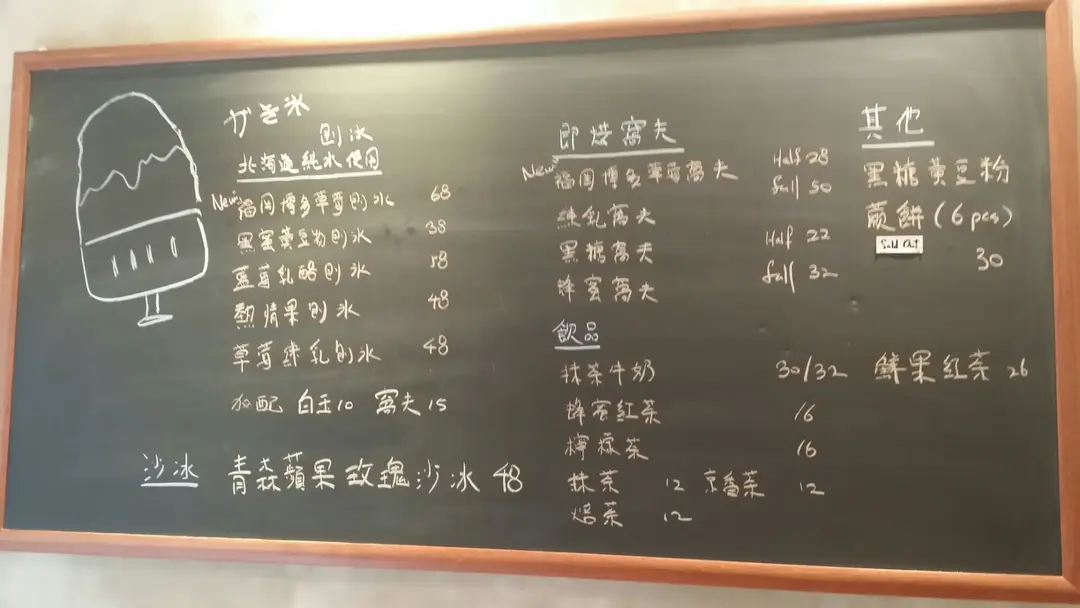 かき氷
刨冰
北海道純水使用
New 福岡博多草莓刨冰 68
黑蜜黃豆粉刨冰 38
藍莓乳酪刨冰 58
熱情果刨冰 48
草莓練乳刨冰 48
加配 白玉10 窩夫15
沙冰 青森蘋果玫瑰沙冰 48
即燒窩夫
New 福岡博多草莓窩夫 Half 28
full 50
練乳窩夫
黑糖窩夫 Half 22
蜂蜜窩夫 full 32
飲品
抹茶牛奶 30/32 鮮果紅茶 26
蜂蜜紅茶 16
檸檬茶 16
抹茶 12 京番茶 12
焙茶 12
其他
黑糖黃豆粉
蕨餅(6pcs)
Sold Out 30